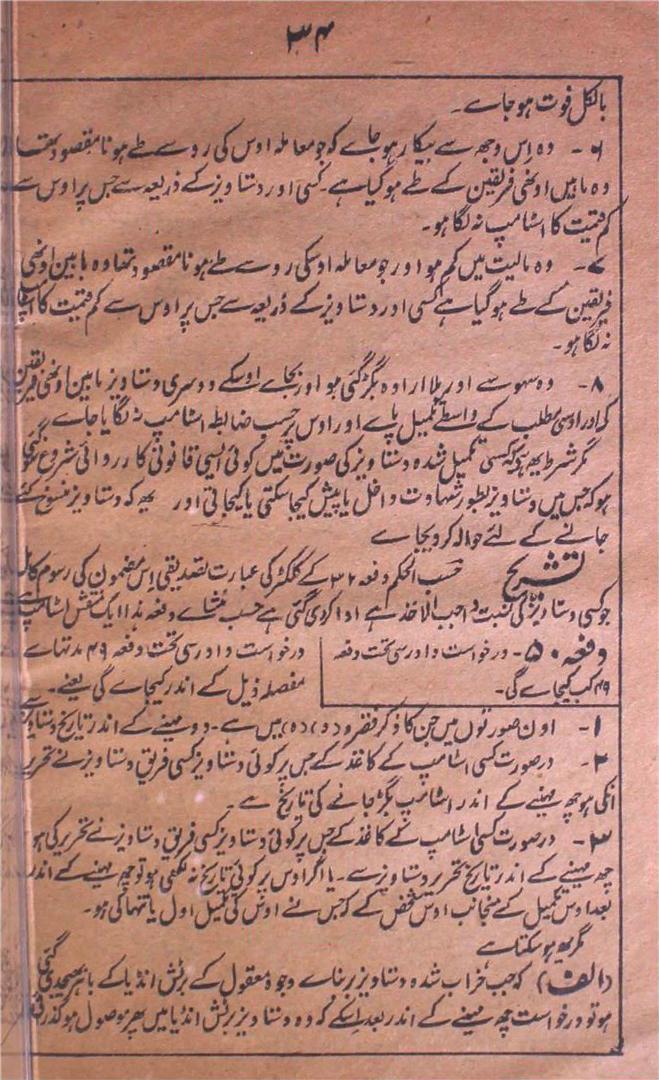 ۳۴
بالکل فوت ہوجاے۔
۶۔ وہ اِس وجھ سے بیکار ہوجاے کہ جو معاملہ اوس کی رو سے طے ہونا مقصود تھا
وہ مابین اونھی فریقین کے طے ہوگیا ہے۔ کسی اور دستاویز کے ذریعہ سے جس پر اوس سے
کم قیمت کا اسٹامپ نہ لگا ہو۔
۷۔ وہ مالیت میں کم ہو اور جو معاملہ اوسکی رو سے طے ہونا مقصود تھا وہ مابین اونھی
فریقین کے طے ہوگیا ہے کسی اور دستاویز کے ذریعہ سے جس پر اوس سے کم قیمت کا اسٹامپ
نہ لگا ہو۔
۸۔ وہ سہو سے اور بلا ارادہ بگڑ گئی ہو اور بجاے اوسکے دوسری دستاویز مابین اونھی فریقین
کے اور اوسی مطلب کے واسطے تکمیل پاے اور اوس پر حسب ضابطہ اسٹامپ نہ لگایا جاے
مگر شرط یھ ہے کہ کسی تکمیل شدہ دستاویز کی صورت میں کوئی ایسی قانونی کارروائی شروع نہ کی گئی
ہو کہ جس میں دستاویز بطور شہادت داخل یا پیش کیجا سکتی یا کیجاتی اور یھ کہ دستاویز منسوخ کئے
جانے کے لئے حوالہ کر دیجاے
تشریح حسب الحکم دفعہ ۳۲ کے کلکٹر کی عبارت تصدیقی اِس مضمون کی رسوم کامل
جو کسی دستاویز کی نسبت واجب الاخذ ہے ادا کردی گئی ہے حسب منشاے دفعہ ہذا ایک نقش اسٹامپ ہے
دفعہ ۵۰۔ درخواست دادرسی تحت دفعہ
۴۹ کب کیجاے گی۔
درخواست دادرسی تحت دفعہ ۴۹ مدتہاے
مفصلہ ذیل کے اندر کیجاے گی یعنے۔
۱۔ اون صورتوں میں جن کا ذکر فقرہ (د) (ہ) میں ہے۔ دو مہینے کے اندر تاریخ دستاویز سے
۲۔ درصورت کسی اسٹامپ کے کاغذ کے جس پر کوئی دستاویز کسی فریق دستاویز نے تحریر
انکی ہو چھ مہینے کے اندر اسٹامپ بگڑ جانے کی تاریخ سے۔
۳۔ درصورت کسی اسٹامپ کے کاغذ کے جس پر کوئی دستاویز کسی فریق دستاویز نے تحریر کی ہو
چھ مہینے کے اندر تاریخ تحریر دستاویز سے۔ یا اگر اوس پر کوئی تاریخ نہ لکھی ہو تو چھ مہینے کے اندر
بعد اوس تکمیل کے منجانب اوس شخص کے کہ جس نے اوس کی تکمیل اول یا تنہا کی ہو۔
مگر یھ ہو سکتا ہے
(الف) کہ جب خراب شدہ دستاویز بر بناے وجوہ معقول کے برٹش انڈیا کے باہر بھیجدی گئی
ہو تو درخواست چھ مہینے کے اندر بعد اِسکے کہ وہ دستاویز برٹش انڈیا میں پھر موصول ہو گذرانی